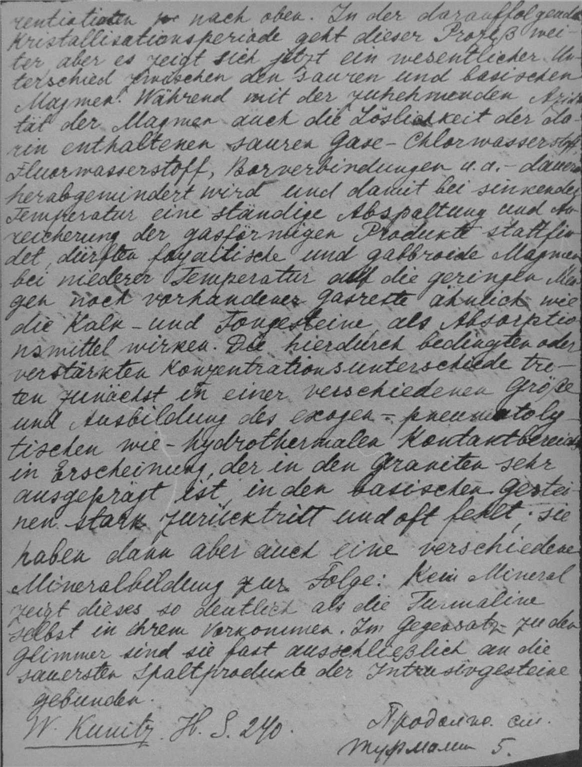 rentiation nach oben. In der darauffolgenden
Kristallisationsperiode geht dieser Prozeß wei-
ter aber es zeigt sich jetzt ein wesentlicher Un-
terschied zwischen den sauren und basischen
Magmen. Während mit der zunehmenden Azidi
tät der Magmen auch die Löslichkeit der da-
rin enthaltenen sauren Gase - Chlorwasserstoff
Fluorwasserstoff, Borverbindungen u.a. - dauernd
herabgemindert wird und damit bei sinkender
Temperatur eine ständige Abspaltung und An
reicherung der gasförmigen Produkte stattfin
det, dürften foyaitische und gabbroide Magmen
bei niederer Temperatur auf die geringen Men
gen noch vorhandener Gasreste ähnlich wie
die Kalk- und Tongesteine als Absorptio
nsmittel wirken. Die hierdurch bedingten oder
verstärkten Konzentrationsunterschiede tre-
ten zunächst in einer verschiedenen Größe
und Ausbildung des exogen-pneumatoly
tischen wie-hydrothermalen Kontaktbereichs
in Erscheinung, der in den Graniten sehr
ausgeprägt ist, in den basischen Gestei-
nen stark zurücktritt und oft fehlt. Sie
haben dann aber auch eine verschiedene
Mineralbildung zur Folge: Kein Mineral
zeigt dieses so deutlich als die Turmaline
selbst in ihrem Vorkommen. Im Gegensatz zu den
Glimmer sind sie fast ausschließlich an die
sauersten Spaltprodukte der Intrusivgesteine
gebunden.
W. Kunitz. H. S. 240. Продолж. см.
Турмалин 5.